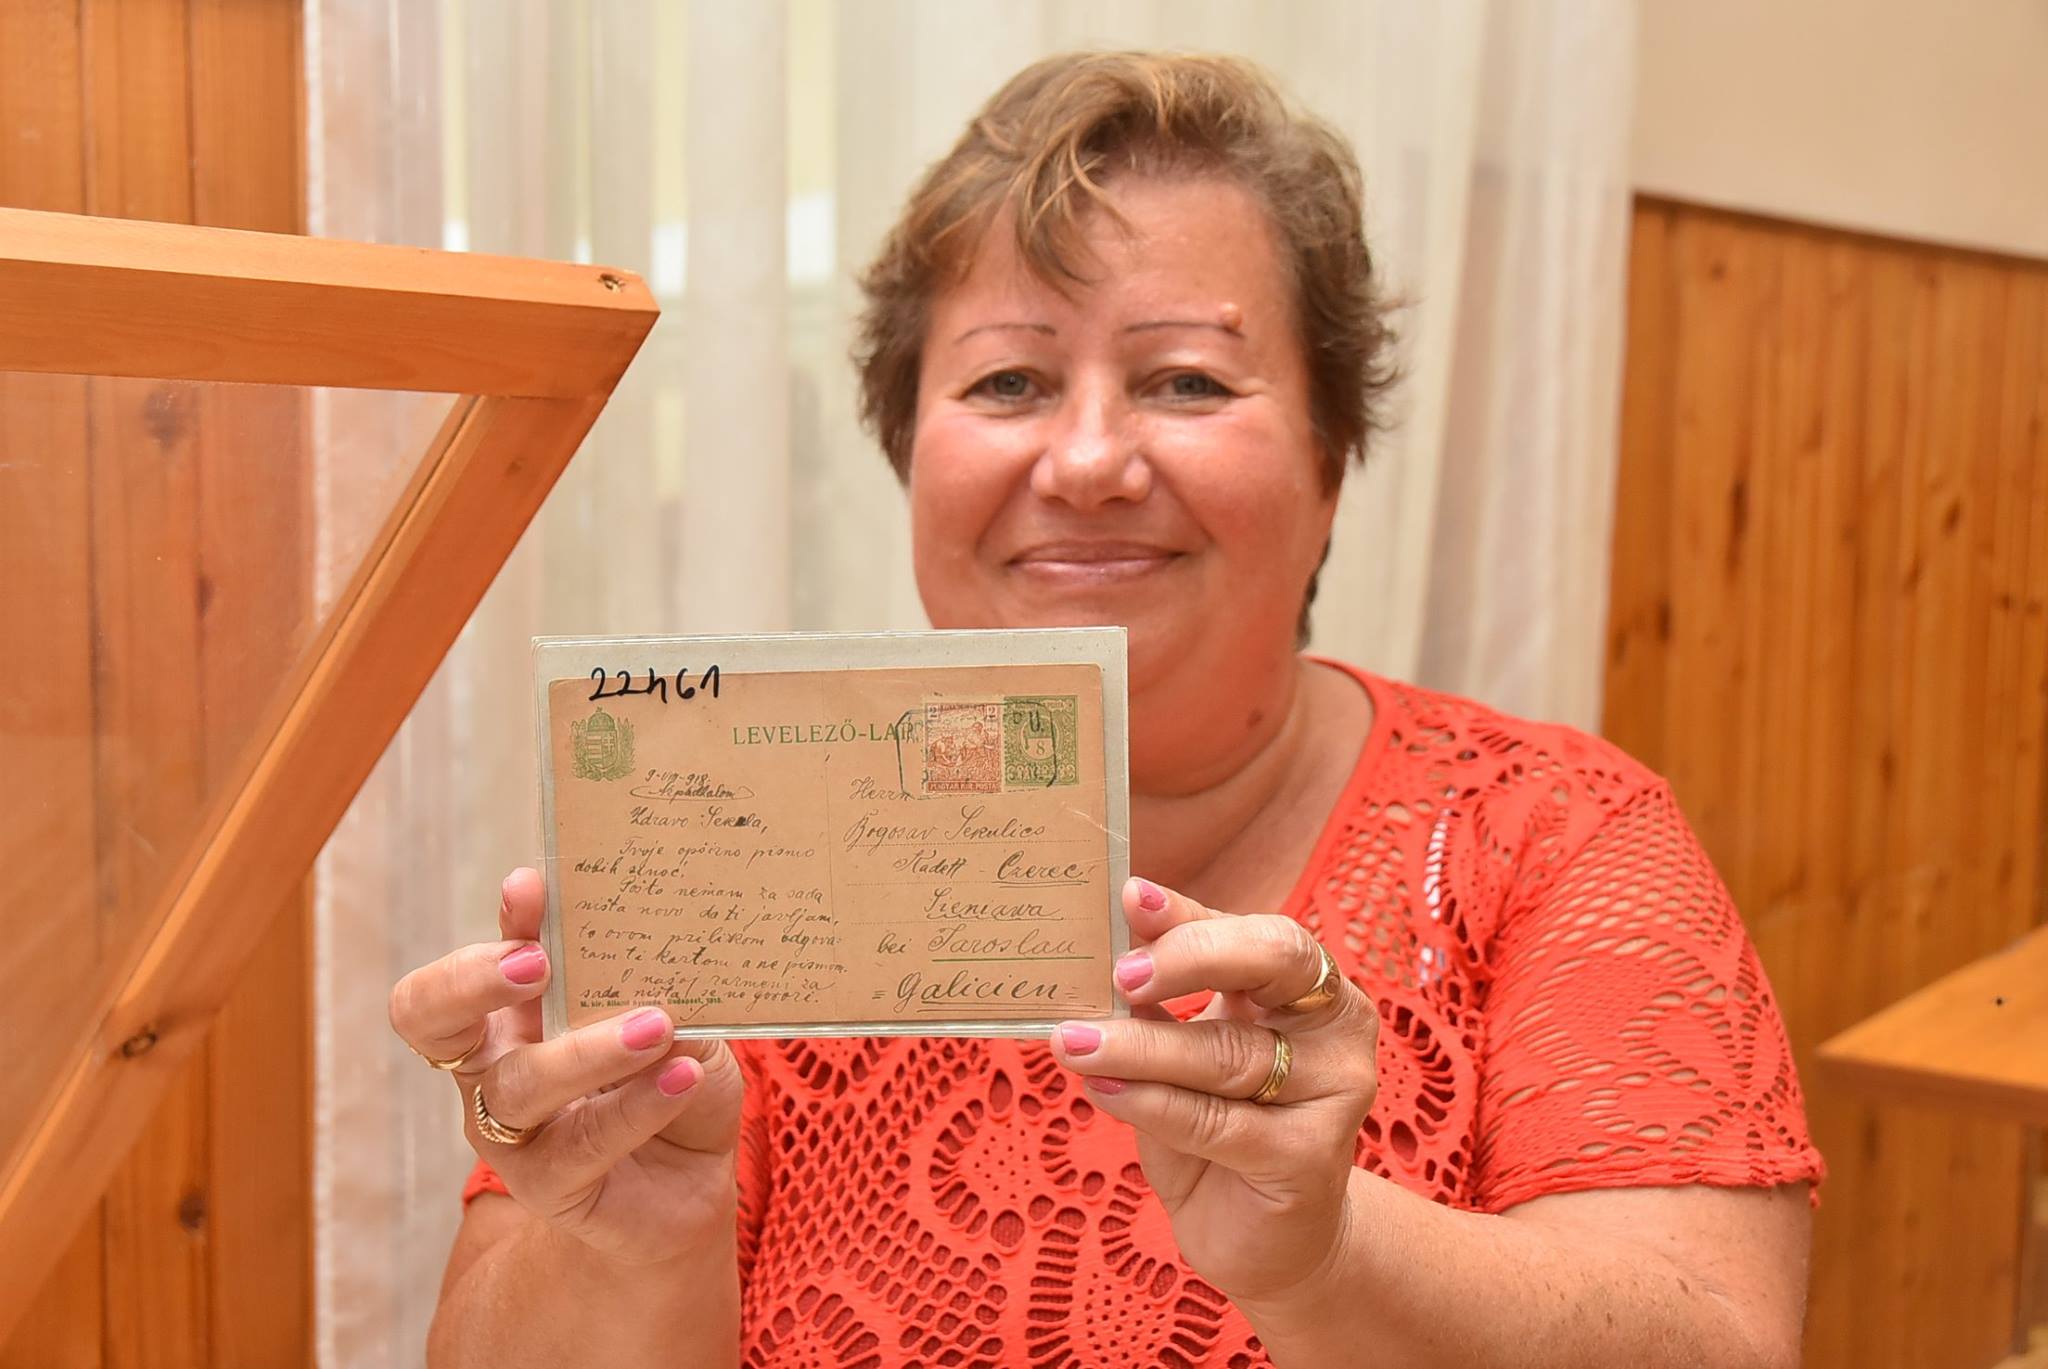 22461
LEVELEZŐ-LAP
2 2
MAGYAR KIR. POSTA
8
9-VIII-918.
Zdravo Sekula,
Tvoje opširno pismo
dobih sinoć.
Pošto nemam za sada
ništa novo da ti javljam,
to ovom prilikom odgova-
ram ti kartom a ne pismom.
O našoj razmeni za
sada ništa se ne govori.
M. kir. állami nyomda. Budapest, 1918.
Herrn
Bogosav Sekulics
Kadett - Czerec
Sieniawa
bei Jaroslau
= Galicien =